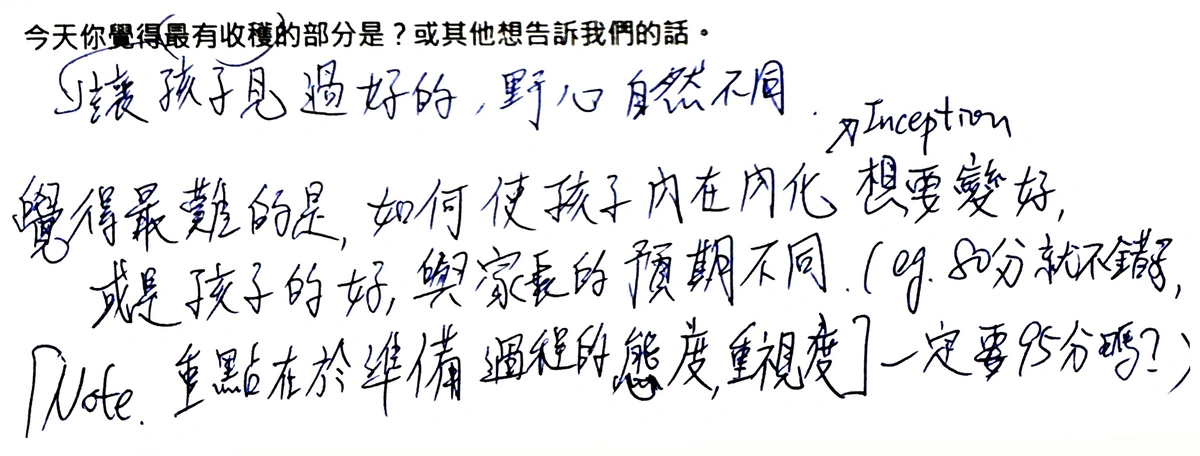 今天你覺得最有收穫的部分是？或其他想告訴我們的話。
讓孩子見過好的，野心自然不同.
↗Inception
覺得最難的是, 如何使孩子內在內化 想要變好,
或是孩子的好, 與家長的預期不同. (eg. 80分就不錯了,
[Note. 重點在於準備過程的態度, 重視度] 一定要95分嗎?)